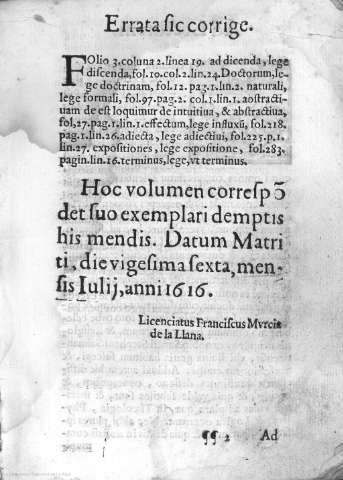 Errata sic corrige.
FOlio 3. coluna 2. linea 19. ad dicenda, lege
discenda, fol. 10. col. 2. lin. 24. Doctorum, le-
ge doctrinam, fol. 12. pag. 1. lin. 2. naturali,
lege formali, fol. 97. pag. 2. col. 1. lin. 1. abstracti-
uam de est loquimur de intuitiua, & abstractiua,
fol. 27. pag. 1. lin. 1. effectum, lege influxũ, fol. 218.
pag. 1. lin. 26. adiecta, lege adiectiui, fol. 225. p. 1.
lin. 27. expositiones, lege expositione, fol. 283.
pagin. lin. 16. terminus, lege, vt terminus.
Hoc volumen correspõ
det suo exemplari demptis
his mendis. Datum Matri
ti, die vigesima sexta, men-
sis Iulij, anni 1616.
Licenciatus Franciscus Murcia
de la Llana.
¶¶ 2 Ad